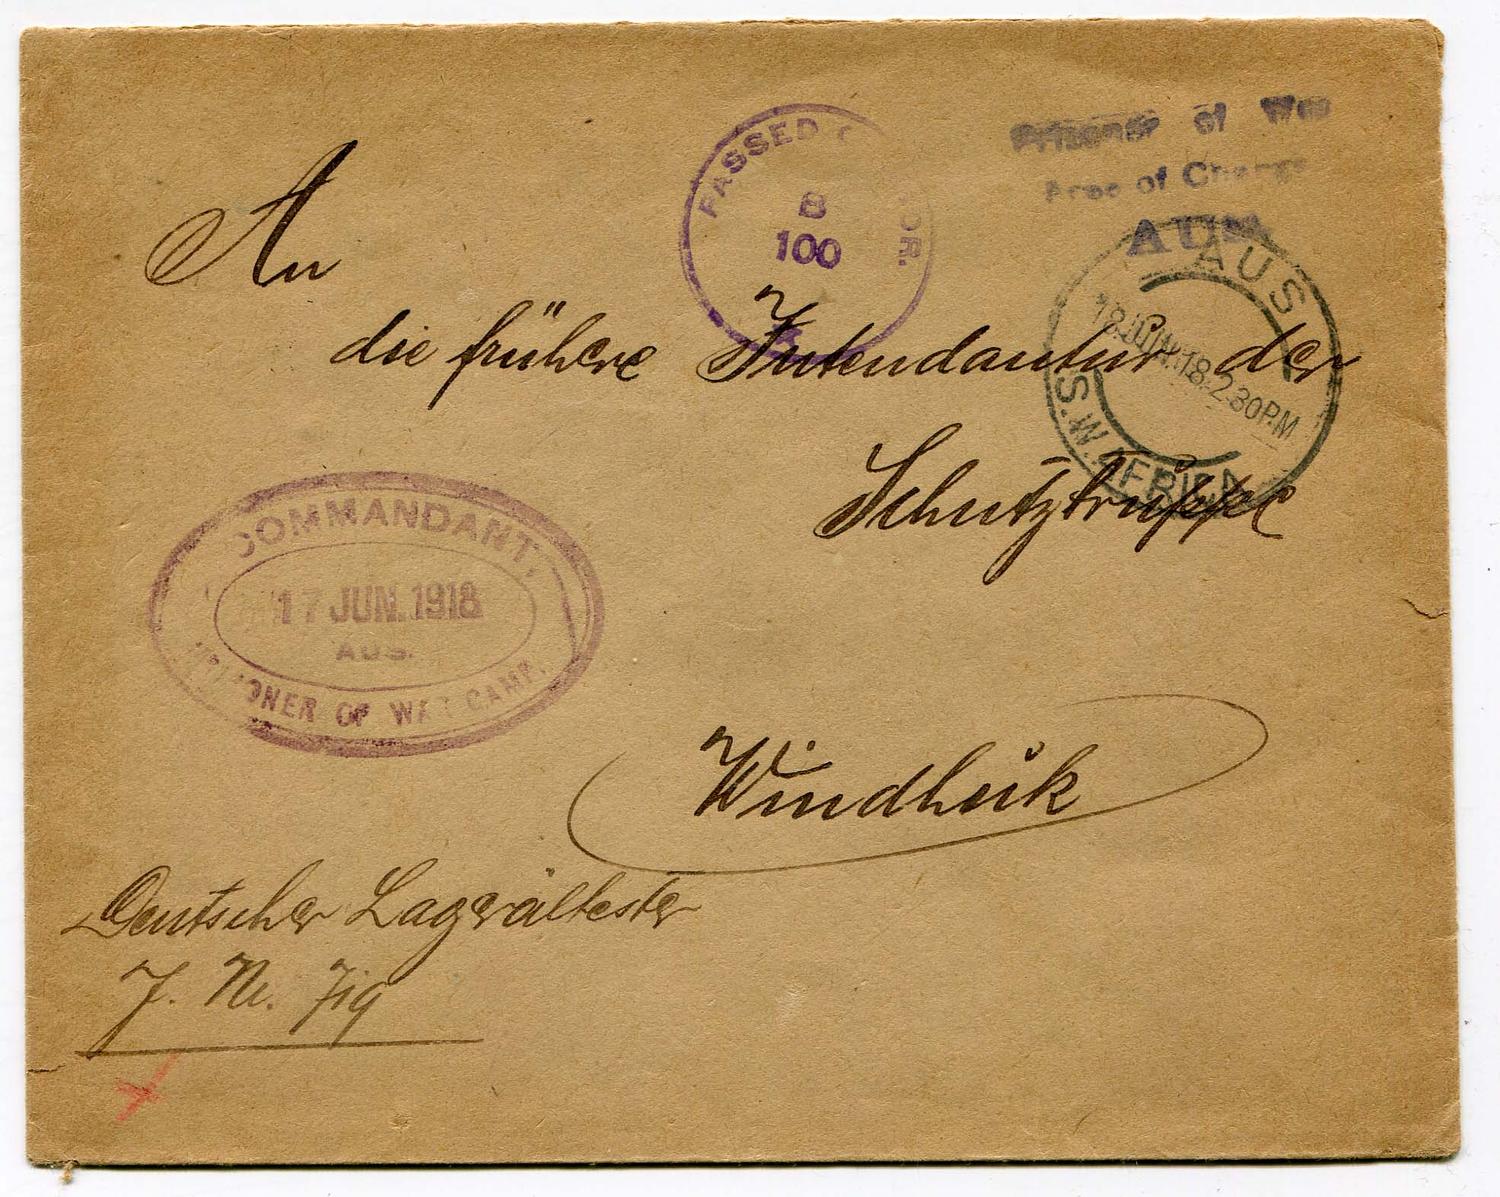 PASSED
B
100
Prisoner of War
Free of Charge
AUS
AUS
18 JUN.18.2 30P.M
S.W. AFRICA
An
die frühere Intendantur der
Schutztruppe
COMMANDANT,
17 JUN.1918
AUS.
PRISONER OF WAR CAMP.
Windhuk
Deutscher Lagerältester
J. Nr.